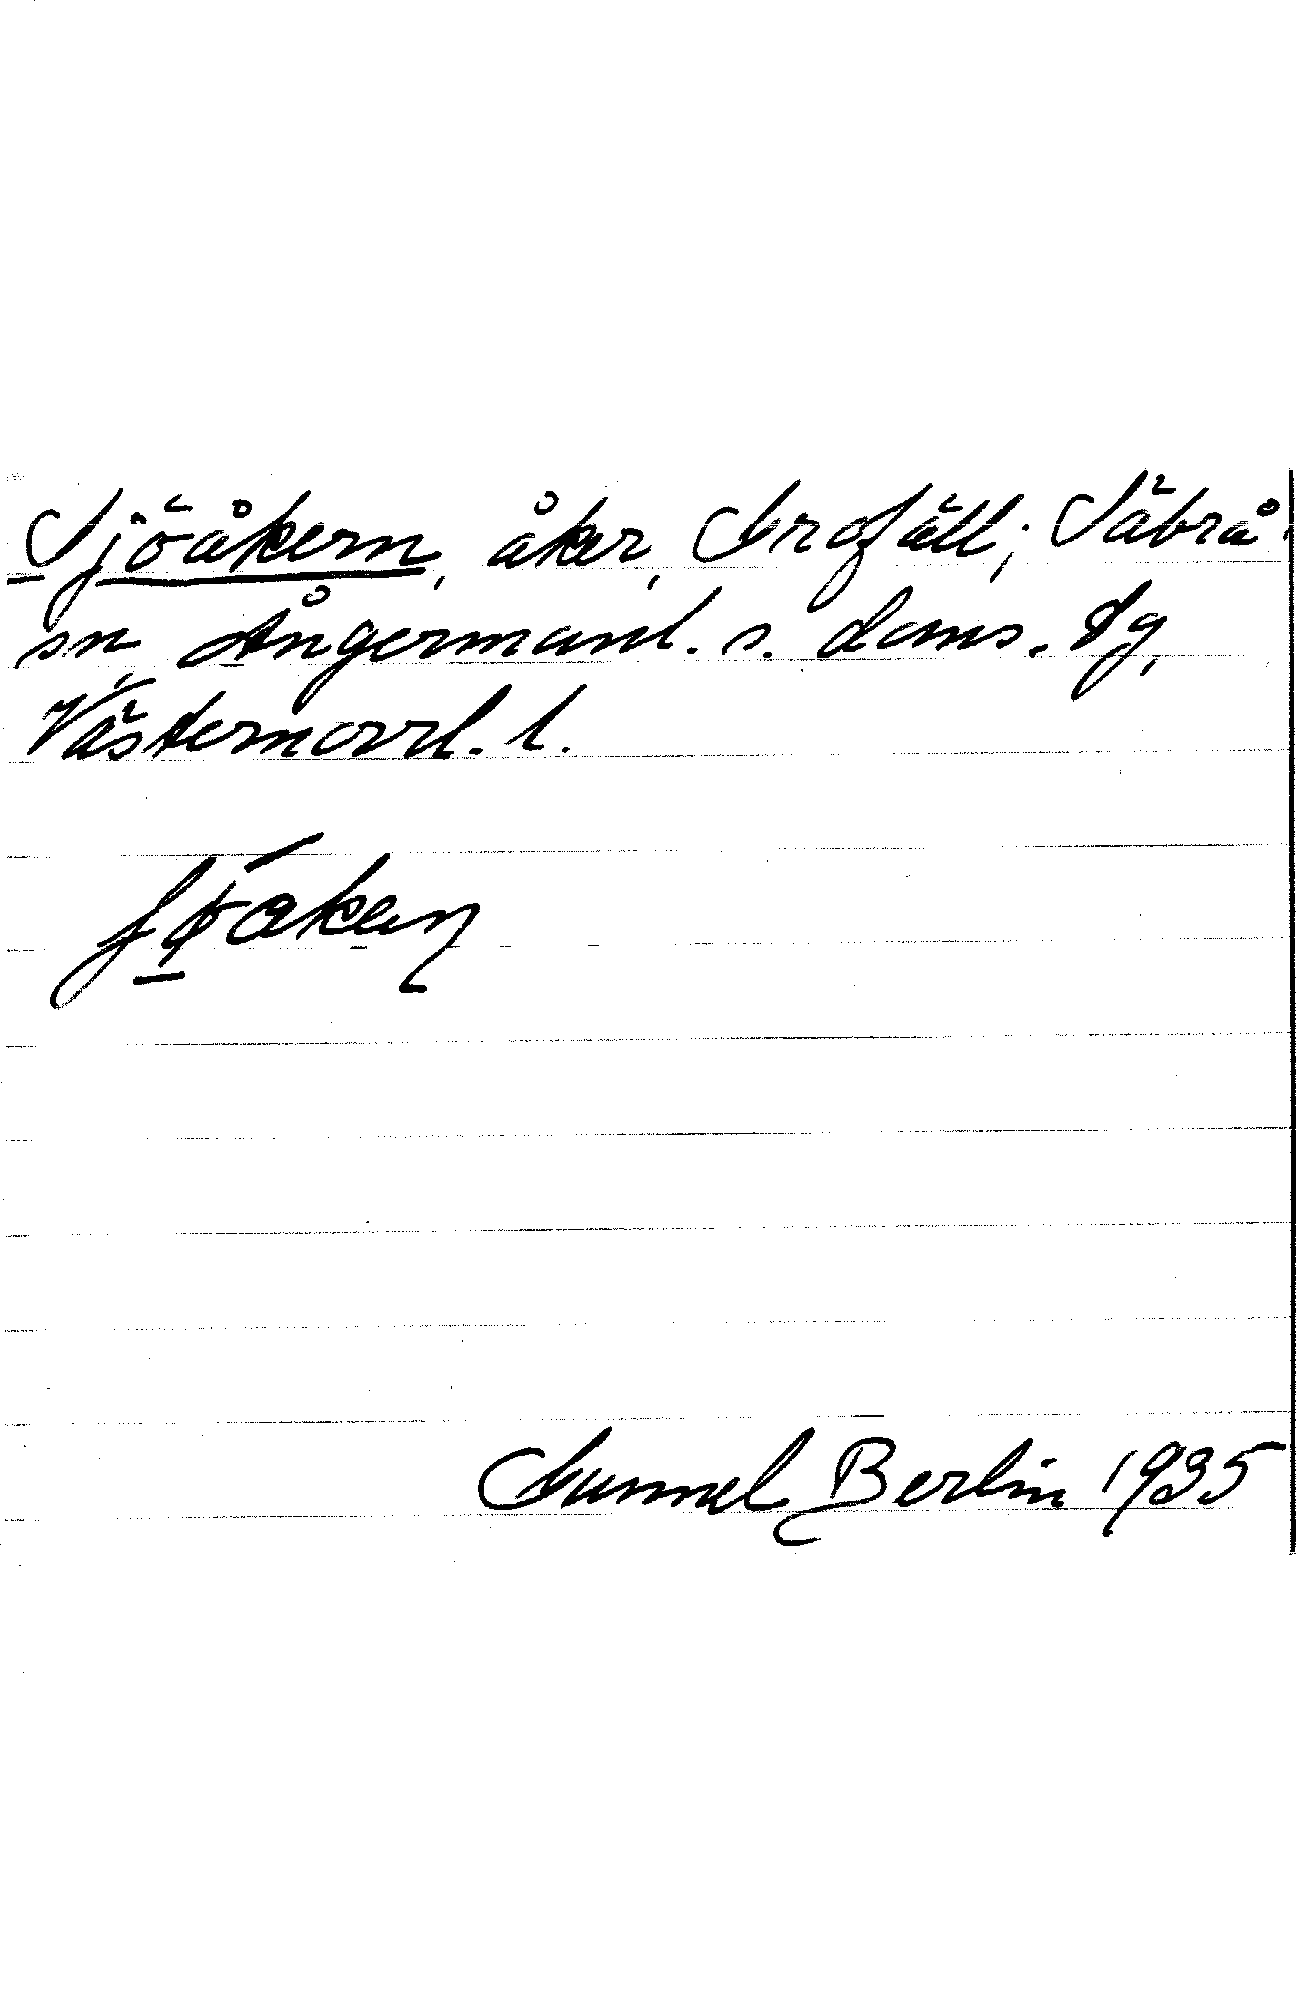 Sjöåkern, åker, Grofäll; Säbrå
sn, Ångermanl. s. doms. tg,
Västernorrl. l.
Gunnel Berlin 1935